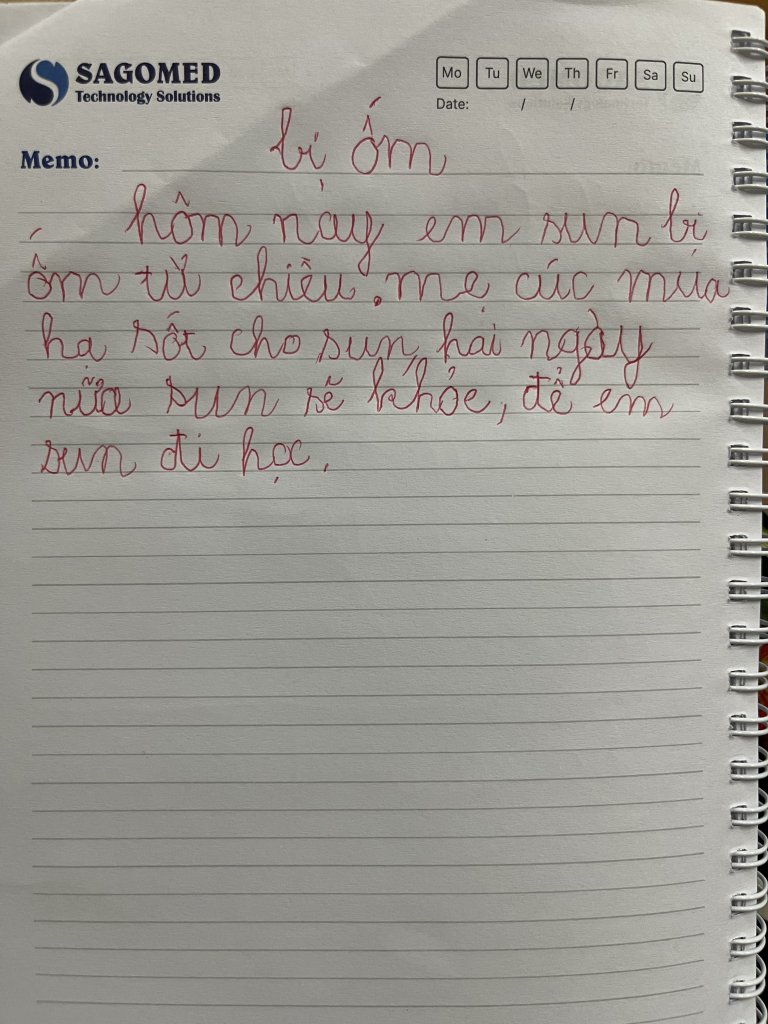 SAGOMED
Technology Solutions
Mo Tu We Th Fr Sa Su
Date: / /
Memo:
bị ốm
hôm này em sun bị
ốm từ chiều. mẹ cúc múa
hạ sốt cho sun, hai ngày
nữa sun sẽ khỏe, để em
sun đi học.